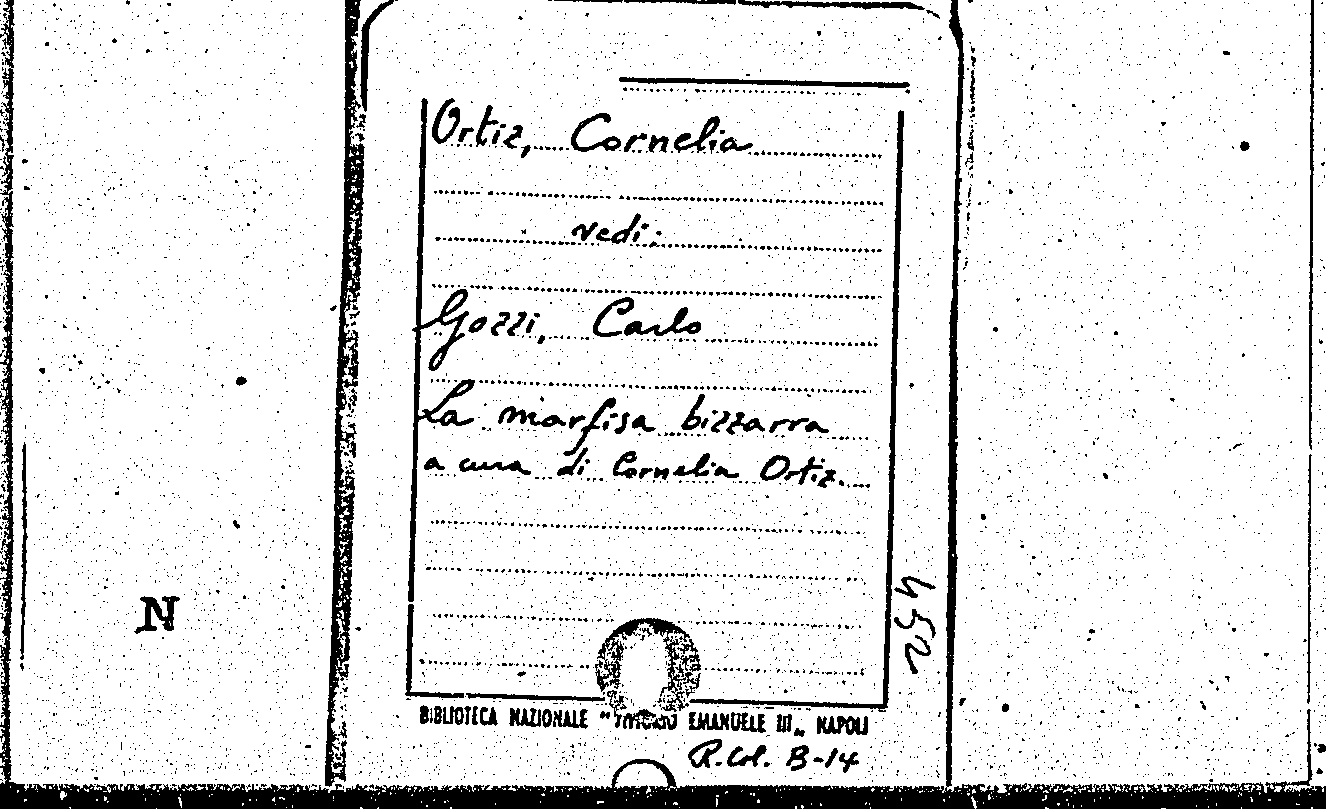 Ortiz, Cornelia
vedi:
Gozzi, Carlo
La marfisa bizzarra
a cura di Cornelia Ortiz.
N
452
BIBLIOTECA NAZIONALE " EMANUELE III„ NAPOLI
R. Col. B-14